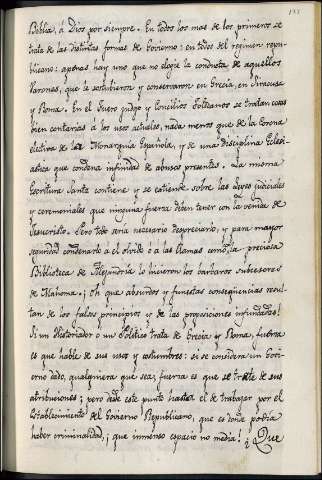 Biblia, á Dios por siempre. En todos los mas de los primeros se
trata de las distintas formas de Govierno: en todos del regimen repu-
blicano: apenas hay uno que no elogie la conducta de aquellos
Varones, que la sostubieron y conservaron en Grecia, en Siracusa
y Roma. En el Fuero juzgo y Concilios Toledanos se tratan cosas
bien contrarias á los usos actuales, nada menos que de la Corona
electiva de la Monarquia Española, y de una disciplina Eclesi-
astica que condena infinidad de abusos presentes. La misma
Escritura Santa contiene y se estiende sobre las Leyes judiciales
y ceremoniales que ninguna fuerza deben tener con la venida de
Jesucristo. Pero todo seria necesario despreciarlo, y para mayor
seguridad condenarlo á el olvido ó á las llamas como la preciosa
Biblioteca de Alejandria lo hicieron los barbaros subcesores
de Mahoma. ¡Oh que absurdos y funestas consequencias resul-
tan de los falsos principios y de las proposiciones infundadas!
Si un Historiador o un Politico trata de Grecia y Roma, fuerza
es que hable de sus usos y costumbres: si se considera un Govi-
erno dado, qualquiera que sea, fuerza es que se trate de sus
atribuciones; pero desde este punto hasta el de trabajar por el
Establecimiento del Govierno Republicano, que es donde podria
haber criminalidad, ¡que inmenso espacio no media! ¿Que